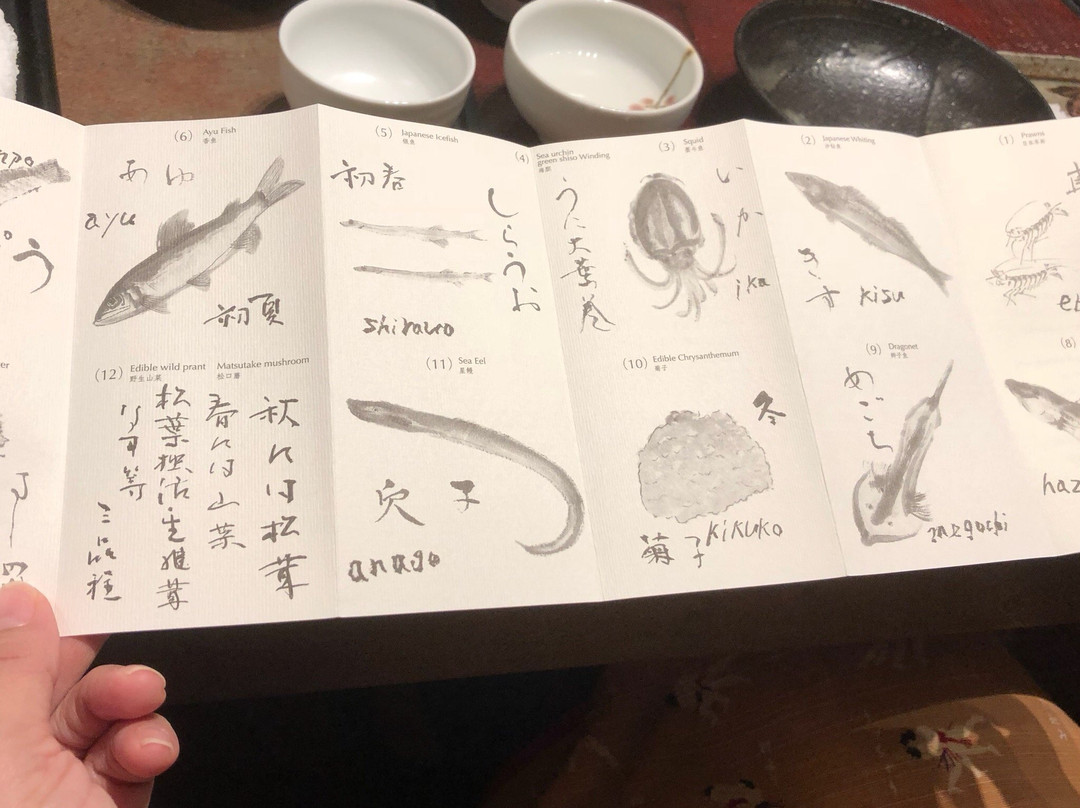 (6) Ayu Fish
香魚
あゆ
ayu
初夏
(5) Japanese Icefish
銀魚
初春
しらうお
shirauo
(4) Sea urchin
green shiso Winding
海胆
うに大葉巻
(3) Squid
墨斗魚
いか
ika
(2) Japanese Whiting
沙鮻魚
きす
kisu
(1)
(12) Edible wild prant Matsutake mushroom
野生山菜 松口蘑
秋には松茸
春には山菜
三品程
(11) Sea Eel
星鰻
穴子
anago
(10) Edible Chrysanthemum
菊子
冬
菊子
kikuko
(9) Dragonet
めごち
megochi
(8)
haz